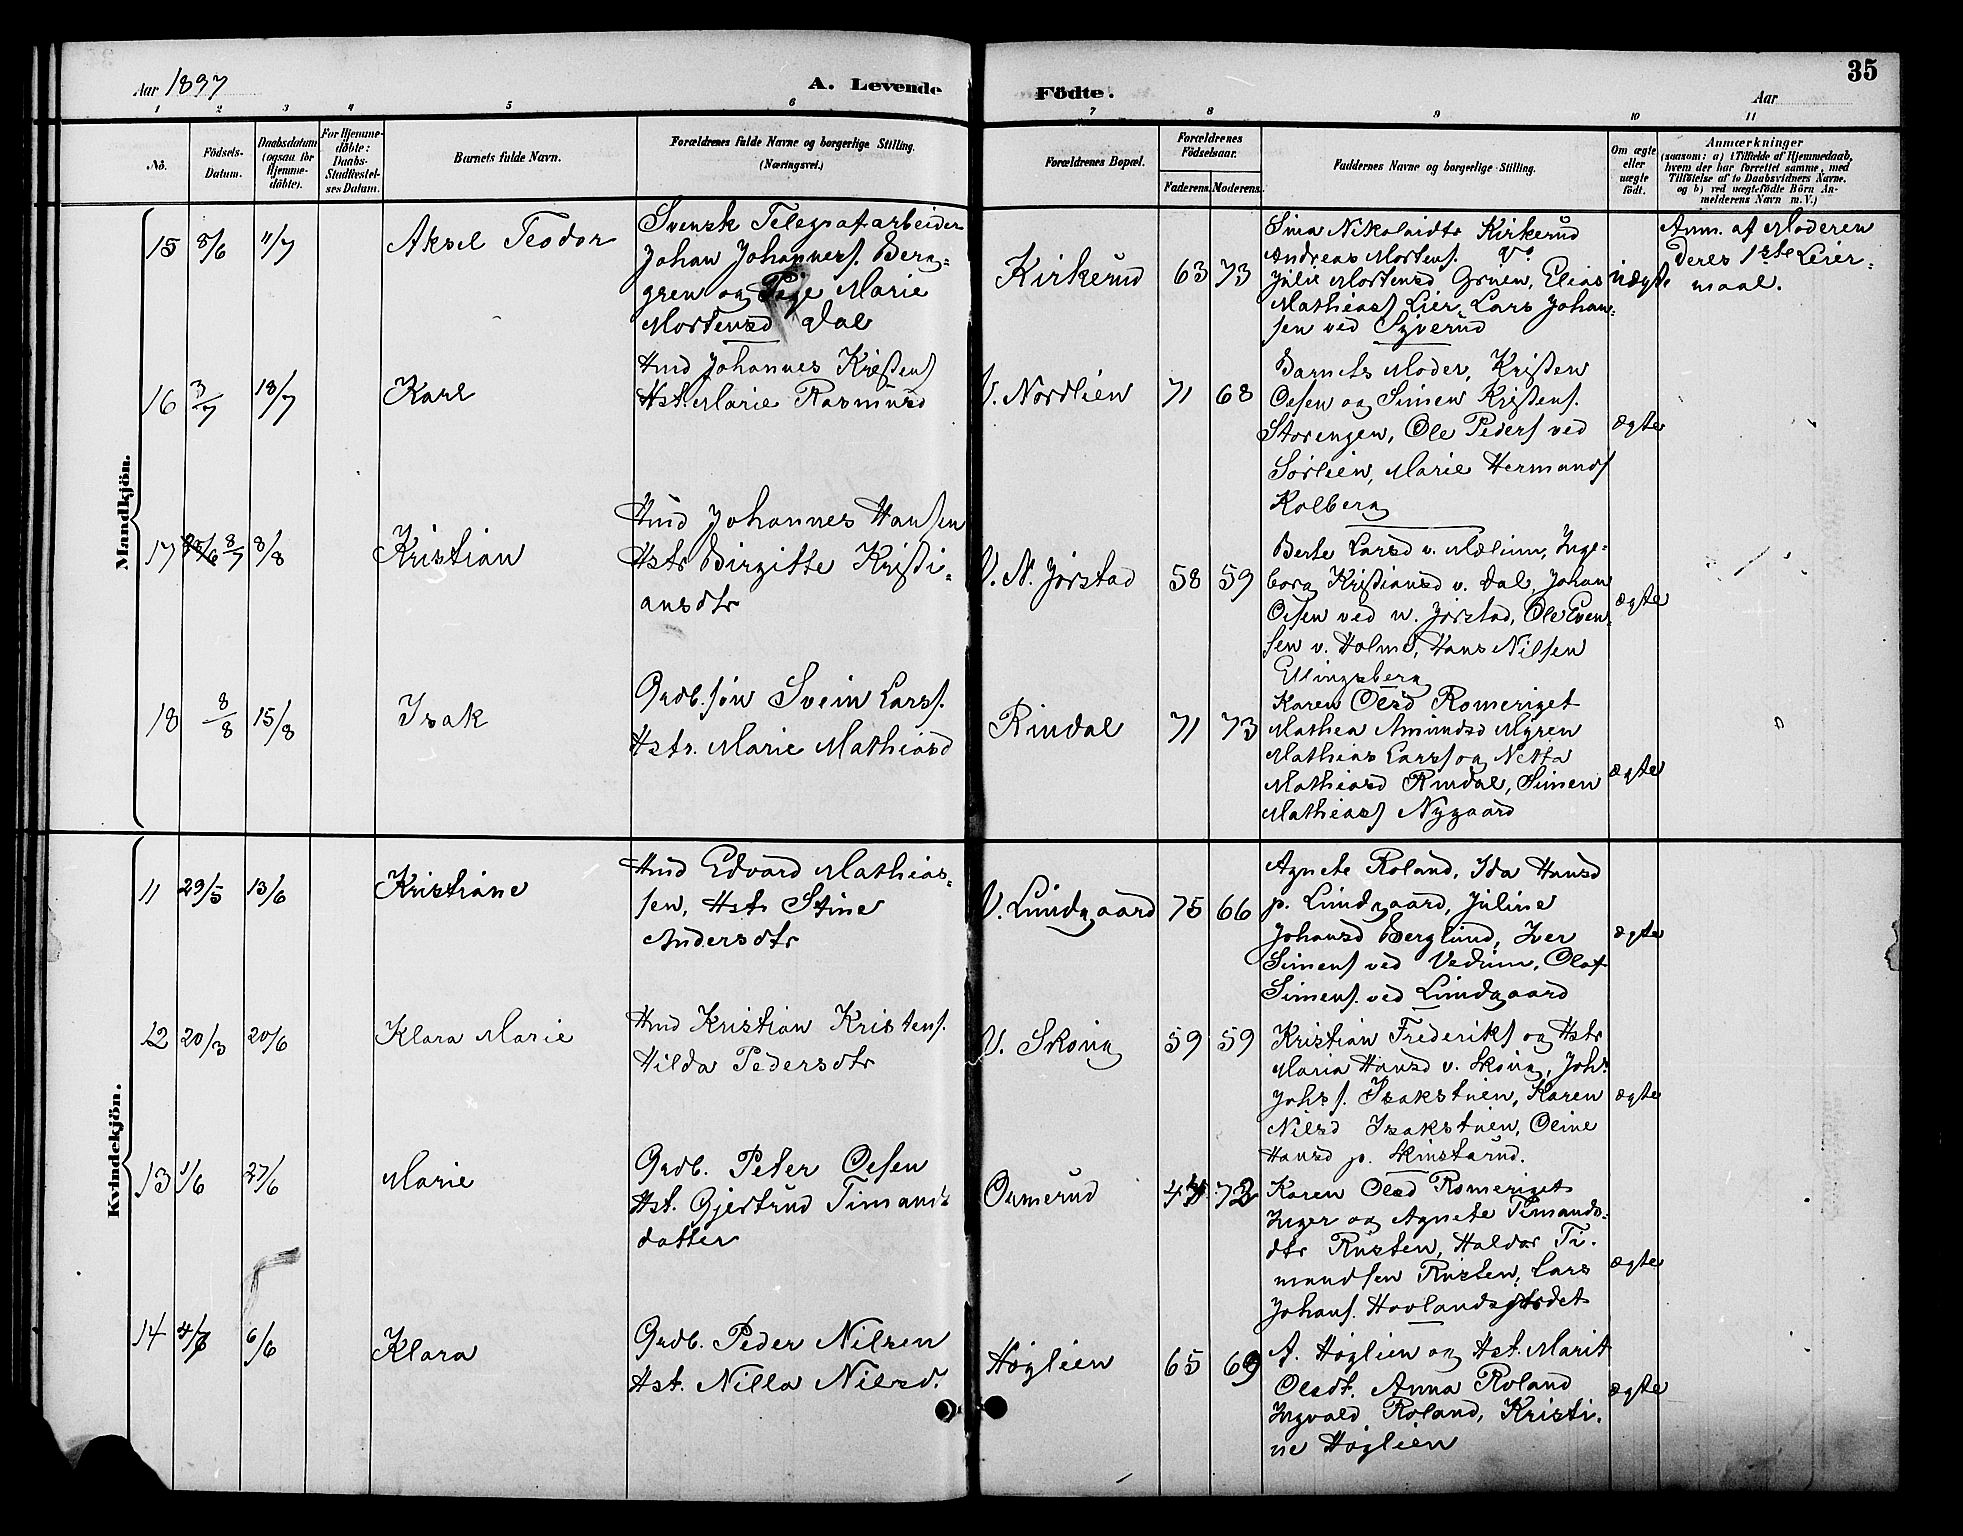 Aar 1897
A. Levende
Födte.
35
Aar
1 2 3 4 5 6 7 8 9 10 11
No.
Födsels-
Datum.
Daabsdatum
(ogsaa for
Hjemme-
döbte).
For Hjemme-
döbte:
Daabs-
Stadfæstel-
ses Datum.
Barnets fulde Navn.
Forældrenes fulde Navne og borgerlige Stilling.
(Næringsvei.)
Forældrenes Bopæl.
Forældrenes
Födselsaar.
Faderens. Moderens.
Faddernes Navne og borgerlige Stilling.
Om ægte
eller
uægte
födt.
Anmærkninger
(saasom: a) i Tilfælde af Hjemmedaab,
hvem der har forrettet samme, med
Tilföielse af to Daabsvidners Navne.
og b) ved uægtefödte Börn An-
melderens Navn m. V.)
Mandkjön.
15 8/6 11/7 Aksel Teodor
Svensk Telegrafarbeider
Johan Johanness. Berg-
gren og Pige Marie
Mortensd Dal
Kirkerud 63 73
Sina Nikolaidtr Kirkerud
Andreas Mortens.
Julie Mortensd Gruen, Elias
Mathiass Lier, Lars Johan-
sen ved Syverud
uægte
Anm. af Moderen
Deres 1ste Leier-
maal.
16 3/7 18/7 Karl
Hmd Johannes Kristens
Hst. Marie Rasmusd
V. Nordlien 71 68
Barnets Moder, Kristen
Olsen og Simen Kristens.
Storengen, Ole Peders ved
Sørlien, Marie Hermands
Kolberg
ægte
17 8/7 8/8 Kristian
Hmd Johannes Hansen
Hstr Birgitte Kristi-
ansdtr
V. N. Jørstad 58 59
Berte Larsd v. Mælum, Inge-
borg Kristiansd v. Dal, Johan
Olsen ved n. Jørstad, Ole Even-
sen v. Holme, Hans Nilsen
Ellingsberg
ægte
18 8/8 15/8 Isak
Grdb.søn Svein Larss.
Hstr. Marie Mathiasd
Rindal 71 73
Karen Olsd Romeriget
Mathea Amundsd Myren
Mathias Larss og Netta
Mathiasd Rindal, Simen
Mathiass Nygaard
ægte
Kvindekjön.
11 29/5 13/6 Kristiane
Hmd Edvard Mathias-
sen, Hstr Stine
Andersdtr
V. Lundgaard 75 66
Agnete Roland, Ida Hansd
p. Lundgaard, Juline
Johansd Berglund, Iver
Simens ved Vedum, Olaf
Simens. ved Lundgaard
ægte
12 20/3 20/6 Klara Marie
Hmd Kristian Kristens.
Hilda Pedersdtr
V. Skoug 59 59
Kristian Frederiks og Hstr
Maria Hansd v. Skoug, Joh.
Johs s. Isakstuen, Karen
Nilsd Isakstuen, Oline
Hansd p. Skinstarud.
ægte
13 1/6 27/6 Marie
Grdb. Peter Olsen
Hst. Gjertrud Timands
datter
Ormerud 72
Karen Olsd Romeriget
Inger og Agnete Timands-
dtr Rusten, Haldor Ti-
mandsen Rusten, Lars
Johans. Hovlandsjordet
ægte
14 6/6 Klara
Grdb. Peder Nilsen
Hst. Nilla Nilsd.
Høglien 65 69
A. Høglien og Hst. Marit
Olsdt. Anna Roland
Ingvald Roland, Kristi-
ne Høglien
ægte